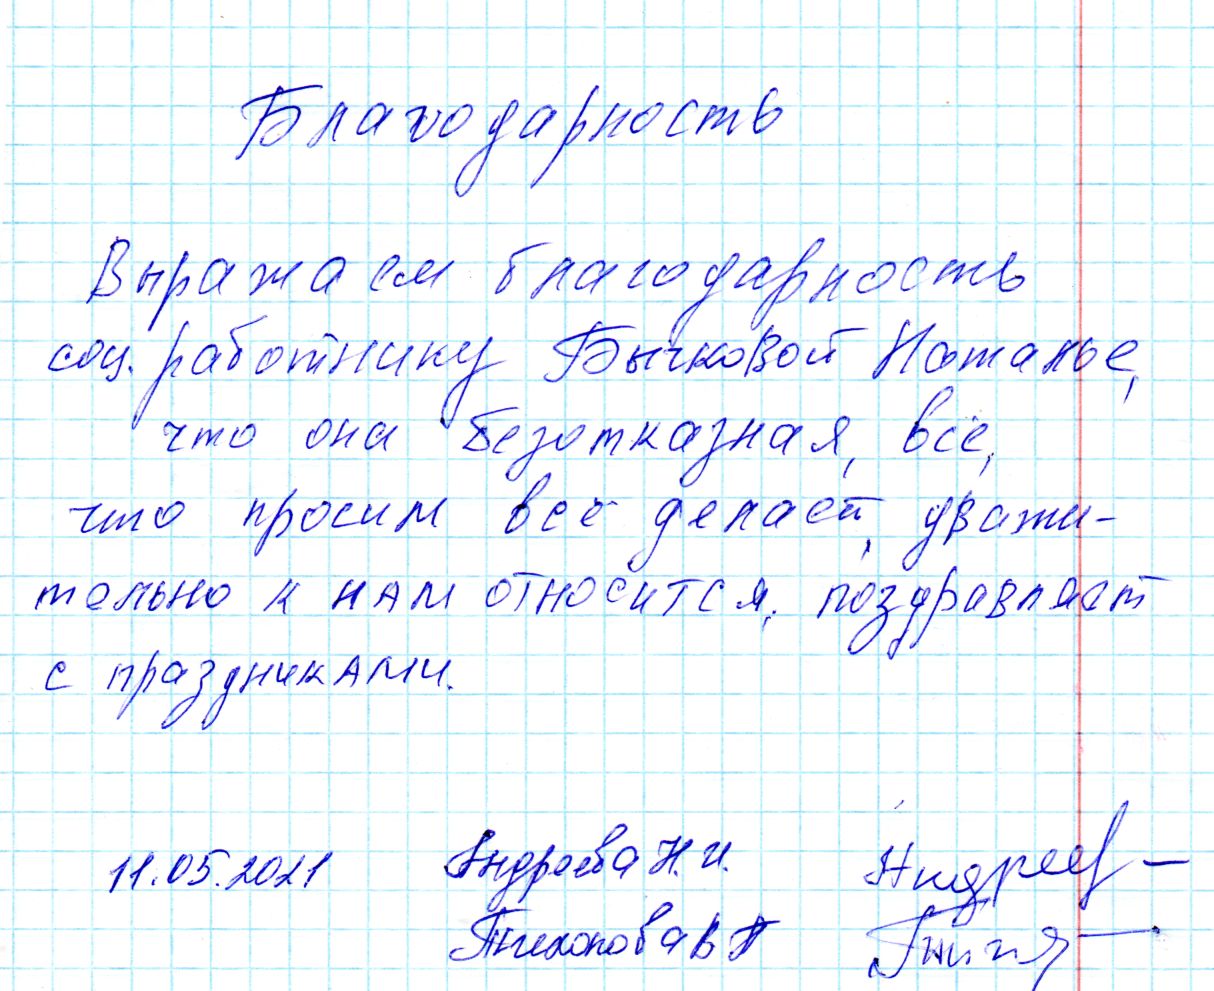 Благодарность
Выражаем благодарность
соц. работнику Бычковой Наталье,
что она безотказная, всё,
что просим всё делает, уважи-
тельно к нам относится, поздравляет
с праздниками.
11.05.2021 Андреева Н.И.